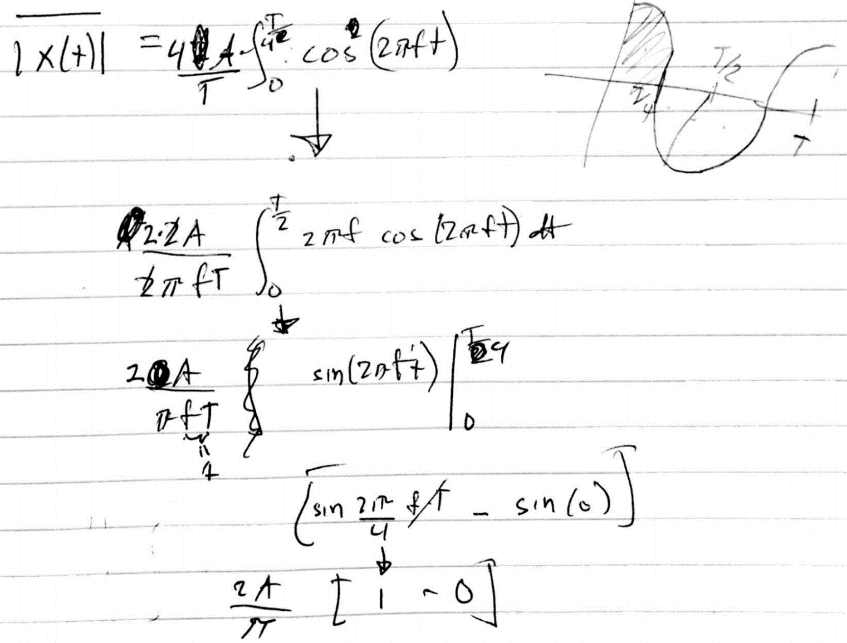 |x(t)| = 4A/T ∫₀^{T/4} cos(2πft)
T/2
T/4
T
↓
2·2A/2πfT ∫₀^{T/2} 2πf cos(2πft) dt
↓
2A/πfT sin(2πft) |₀^{T/4}
1
[sin 2π/4 fT - sin(0)]
↓
2A/π [1 - 0]